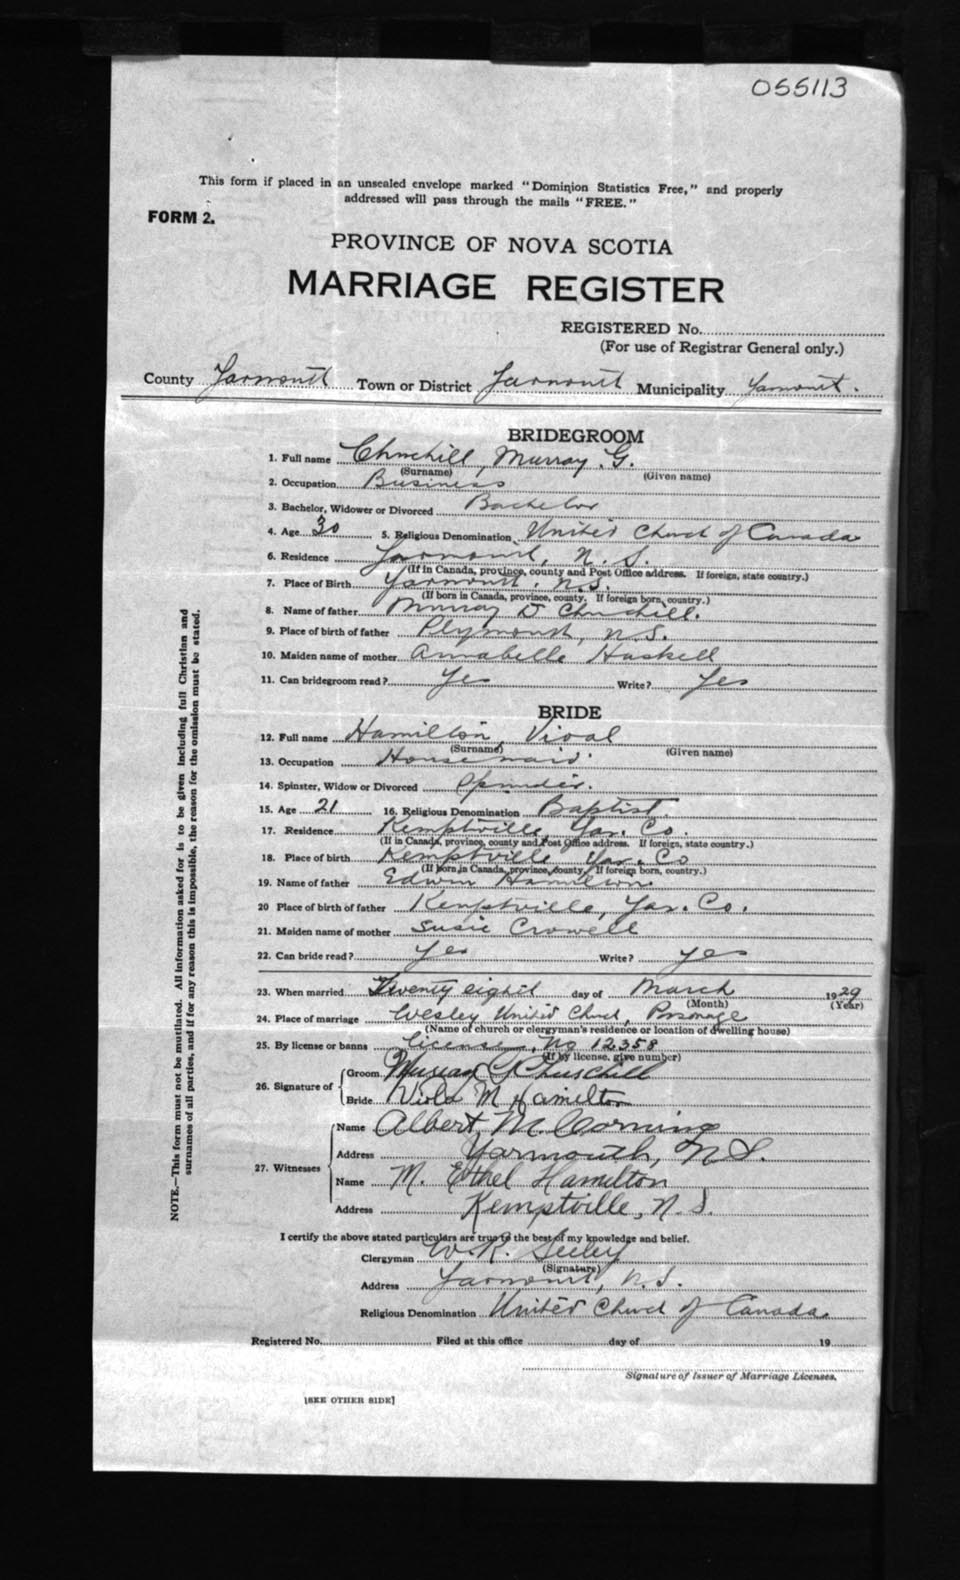 055113
This form if placed in an unsealed envelope marked "Dominion Statistics Free," and properly
addressed will pass through the mails "FREE."
FORM 2.
PROVINCE OF NOVA SCOTIA
MARRIAGE REGISTER
REGISTERED No.
(For use of Registrar General only.)
County Yarmouth Town or District Yarmouth Municipality Yarmouth.
BRIDEGROOM
1. Full name Churchill, Murray G.
(Surname) (Given name)
2. Occupation Business
3. Bachelor, Widower or Divorced Bachelor
4. Age 30 5. Religious Denomination United Church of Canada
6. Residence Yarmouth, N.S.
(If in Canada, province, county and Post Office address. If foreign, state country.)
7. Place of Birth Yarmouth, N.S.
(If born in Canada, province, county. If foreign born, country.)
8. Name of father Murray D Churchill.
9. Place of birth of father Plymouth, N.S.
10. Maiden name of mother Annabelle Haskell
11. Can bridegroom read? Yes Write? Yes
BRIDE
12. Full name Hamilton, Vioal
(Surname) (Given name)
13. Occupation Housemaid.
14. Spinster, Widow or Divorced Spinster.
15. Age 21 16. Religious Denomination Baptist.
17. Residence Kemptville, Yar. Co.
(If in Canada, province, county and Post Office address. If foreign, state country.)
18. Place of birth Kemptville Yar. Co
(If born in Canada, province, county. If foreign born, country.)
19. Name of father Edwin Hamilton.
20 Place of birth of father Kemptville, Yar. Co.
21. Maiden name of mother Susie Crowell
22. Can bride read? Yes Write? Yes
23. When married Twenty eighth day of March 1929
(Month) (Year)
24. Place of marriage Wesley United Church, Parsonage
(Name of church or clergyman's residence or location of dwelling house)
25. By license or banns License, No 12358
(If by license, give number)
26. Signature of Groom Murray G Churchill
Bride Viola M Hamilton
27. Witnesses Name Albert M. Corning
Address Yarmouth, N.S.
Name M. Ethel Hamilton
Address Kemptville, N.S.
I certify the above stated particulars are true to the best of my knowledge and belief.
Clergyman W. R. Seeley
(Signature)
Address Yarmouth, N.S.
Religious Denomination United Church of Canada.
Registered No. Filed at this office day of 19
Signature of Issuer of Marriage Licenses.
[SEE OTHER SIDE]
NOTE.—This form must not be mutilated. All information asked for is to be given including full Christian and
surnames of all parties, and if for any reason this is impossible, the reason for the omission must be stated.